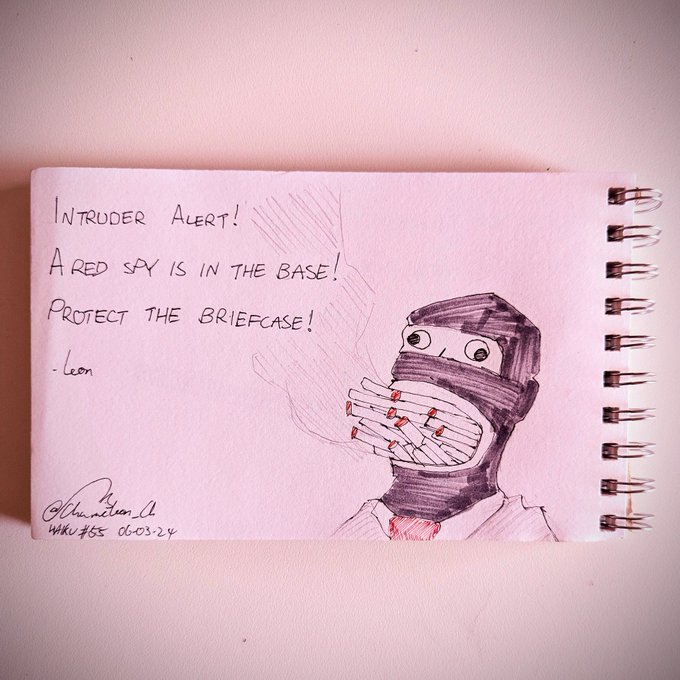 INTRUDER ALERT!
A RED SPY IS IN THE BASE!
PROTECT THE BRIEFCASE!
- Leon
HAIKU #55 06-03-24